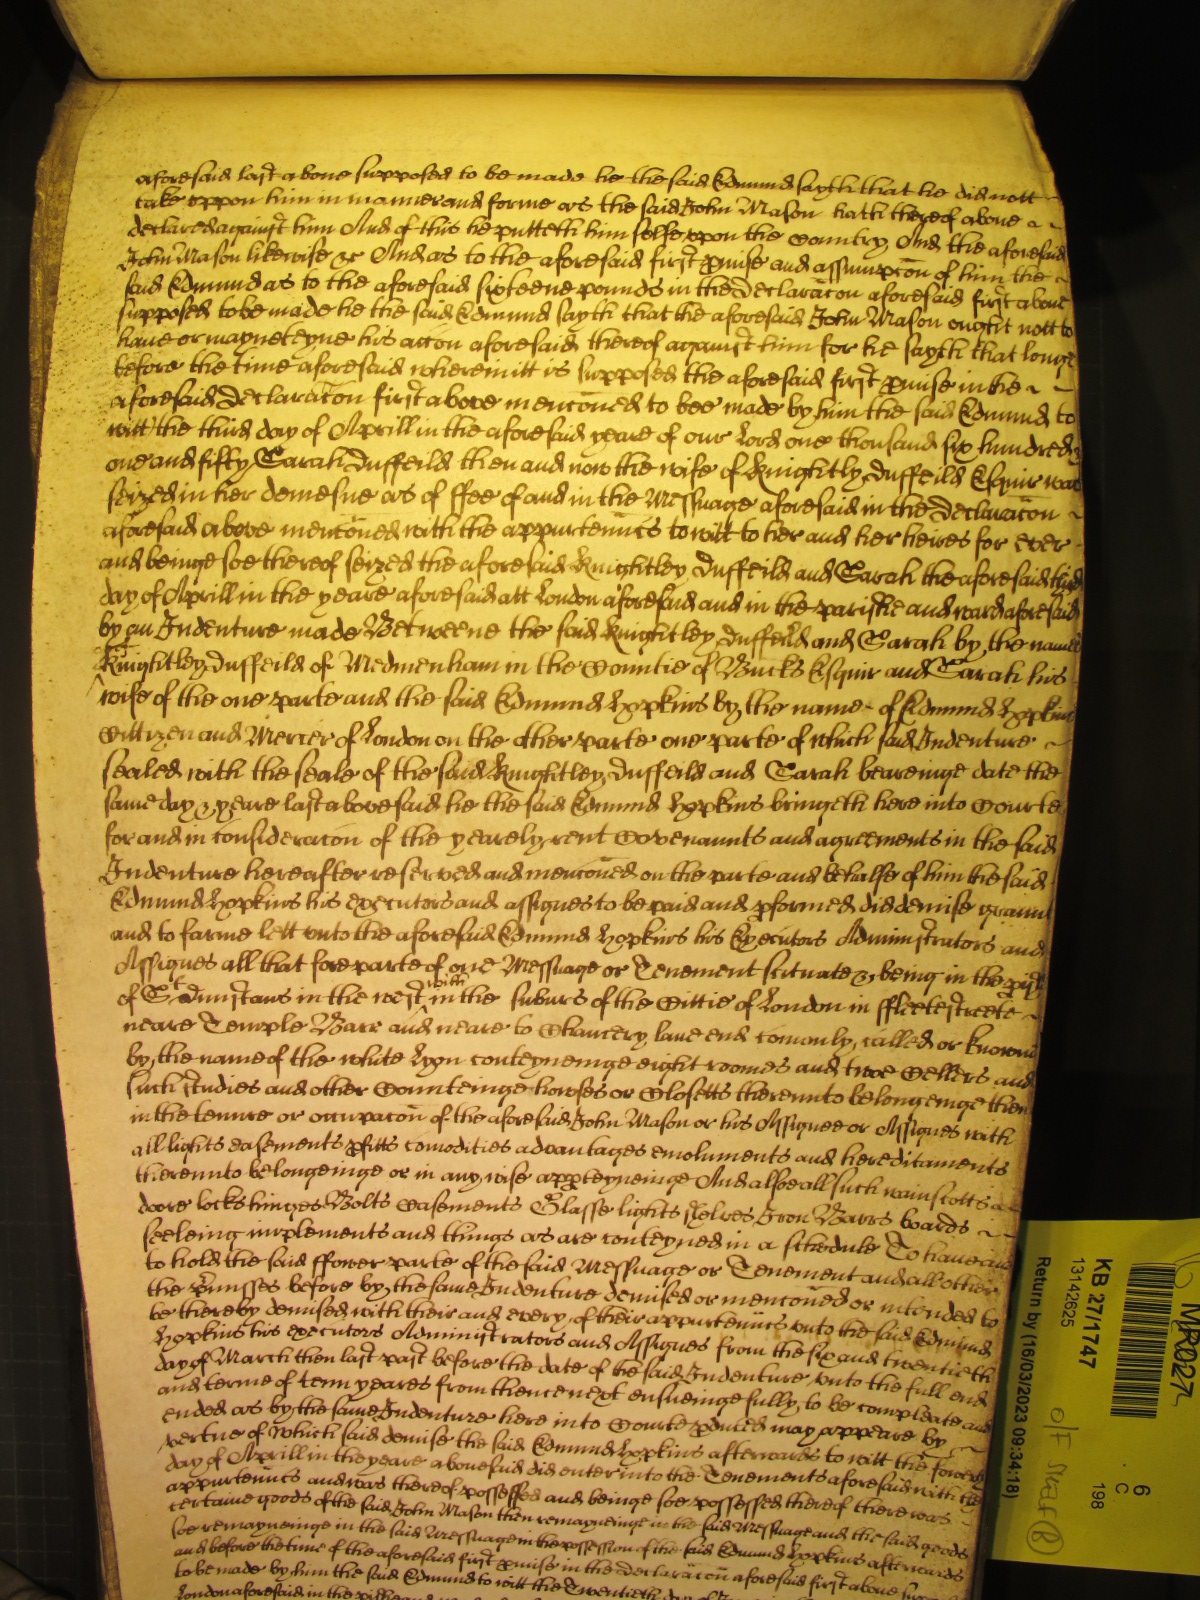 aforesaid last above supposed to be made he the said Edmund sayth that he did nott
take uppon him in manner and forme as the said John Mason hath thereof above
declared against him And of this he putteth him selfe upon the Country, And the aforesaid
John Mason likewise &c And as to the aforesaid first pmise and assumpcōn of him the
said Edmund as to the aforesaid sixteene pounds in the declaracōn aforesaid first above
supposed to be made he the said Edmund sayth that the aforesaid John Mason ought nott to
have or maynteyne his accōn aforesaid thereof against him for he sayth that longe
before the time aforesaid wherein itt is supposed the aforesaid first pmise in the
aforesaid declaracōn first above mencōned to bee made by him the said Edmund to
witt the third day of Aprill in the aforesaid yeare of our Lord one thousand six hundred
one and fifty Sarah Duffeild then and now the wife of Knightly Duffeild Esquir was
seized in her demesne as of ffee of and in the Messuage aforesaid in the declaracōn
aforesaid above mencōned with the appurtenn̄cs to witt to her and her heires for ever
and beinge soe thereof seized the aforesaid Knightley Duffeild and Sarah the aforesaid third
day of Aprill in the yeare aforesaid att London aforesaid and in the parishe and ward aforesaid
by an Indenture made Betweene the said Knightley Duffeild and Sarah by the names
of Knightley Duffeild of Medmenham in the Countie of Bucks Esquir and Sarah his
wife of the one parte and the said Edmund Hopkins by the name of Edmund Hopkins
Cittizen and Mercer of London on the other parte one parte of which said Indenture
sealed with the seale of the said Knightley Duffeild and Sarah beareinge date the
same day & yeare last abovesaid he the said Edmund Hopkins bringeth here into Courte
for and in consideracōn of the yearely rent Covenaunts and agreements in the said
Indenture hereafter reserved and mencōned on the parte and behalfe of him the said
Edmund Hopkins his executors and assignes to be paid and pformed did demise graunt
and to farme lett unto the aforesaid Edmund Hopkins his Executors Administrators and
Assignes all that fore parte of one Messuage or Tenement scituate & being in the pish
of St Dunstans in the west in the with suburs of the Cittie of London in ffleetestreete
neare Temple Barr and neare to Chancery lane end comonly called or knowne
by the name of the white Lyon conteyneinge eight roomes and twoe Cellers and
such studies and other Counteinge howses or Closetts thereunto belongeinge then
in the tenure or occupacōn of the aforesaid John Mason or his Assignee or Assignes with
all lights easements pfitts comodities advantages emoluments and hereditaments
thereunto belongeinge or in any wise appteyneinge And alsoe all such wainscotts
dore locks hinges Bolts Casements Glasse lights shelves Iron Barrs boards
seeleing implements and things as are conteyned in a schedule To have and
to hold the said fforer parte of the said Messuage or Tenement and all other
the pmisses before by the same Indenture demised or mencōned or intended to
be thereby demised with their and every of their appurtenn̄cs unto the said Edmund
Hopkins his executors Administrators and Assignes from the six and twentieth
day of March then last past before the date of the said Indenture unto the full end
and terme of tenn yeares from thence next ensueinge fully to be compleate and
ended as by the same Indenture here into Courte pduced may appeare by
vertue of which said demise the said Edmund Hopkins afterwards to witt the fowerth
day of Aprill in the yeare abovesaid did enter into the Tenements aforesaid with the
appurtenn̄cs and was thereof possessed and beinge soe possessed thereof there was
certaine goods of the said John Mason then remayneinge in the said Messuage and the said goods
soe remayneinge in the said Messuage in the possession of the said Edmund Hopkins afterwards
and before the time of the aforesaid first pmise in the declaracōn aforesaid first above
to be made by him the said Edmund to witt the Twentieth day of
London aforesaid in the
MR027
6
C
198
KB 27/1747
13142625
Return by (16/03/2023 09:34:18)